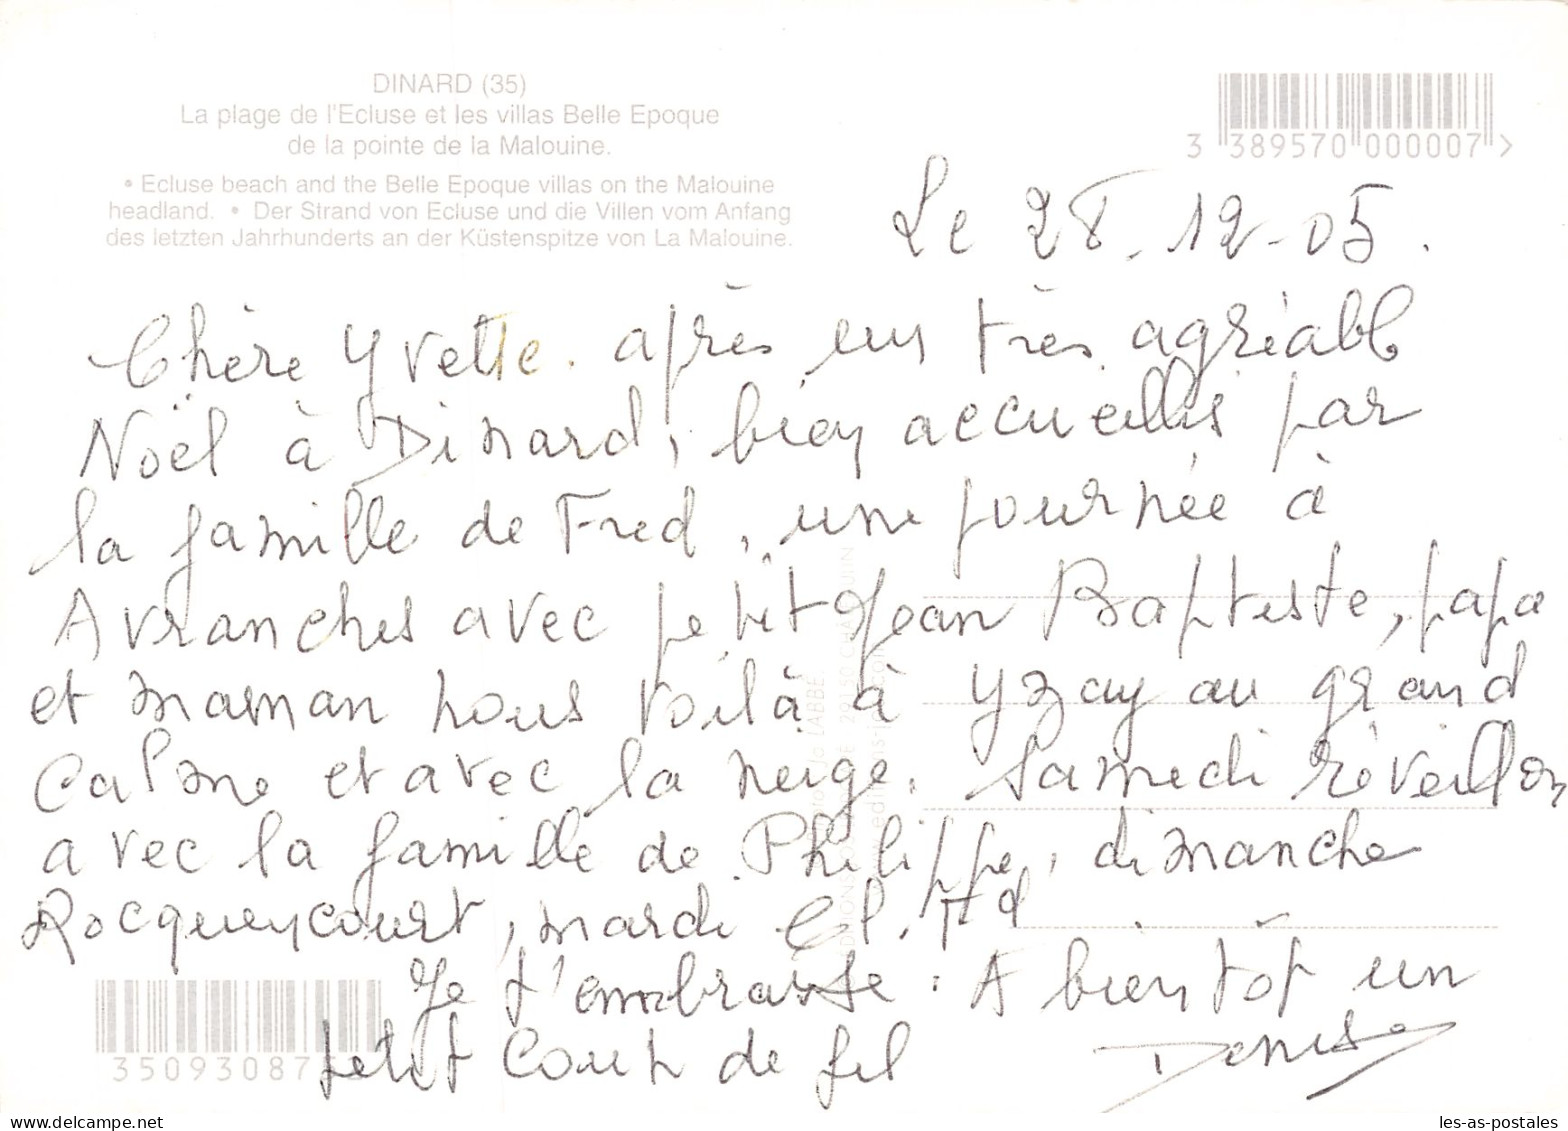 DINARD (35)
La plage de l'Ecluse et les villas Belle Epoque
de la pointe de la Malouine.
• Ecluse beach and the Belle Epoque villas on the Malouine
headland. • Der Strand von Ecluse und die Villen vom Anfang
des letzten Jahrhunderts an der Küstenspitze von La Malouine.
3 389570 000007 >
Le 28.12-05.
Chère Yvette. après un très agréable
Noël à Dinard, bien accueillis par
la famille de Fred, une journée à
Avranches avec petit Jean Baptiste, papa
et maman nous voilà à Yzay au grand
Calme et avec la neige. Samedi réveillon
avec la famille de Philippe, dimanche
Rocquencourt, mardi Cl. Fd
Je t'embrasse. A bientôt un
petit coup de fil
Denise
35093087
les-as-postales